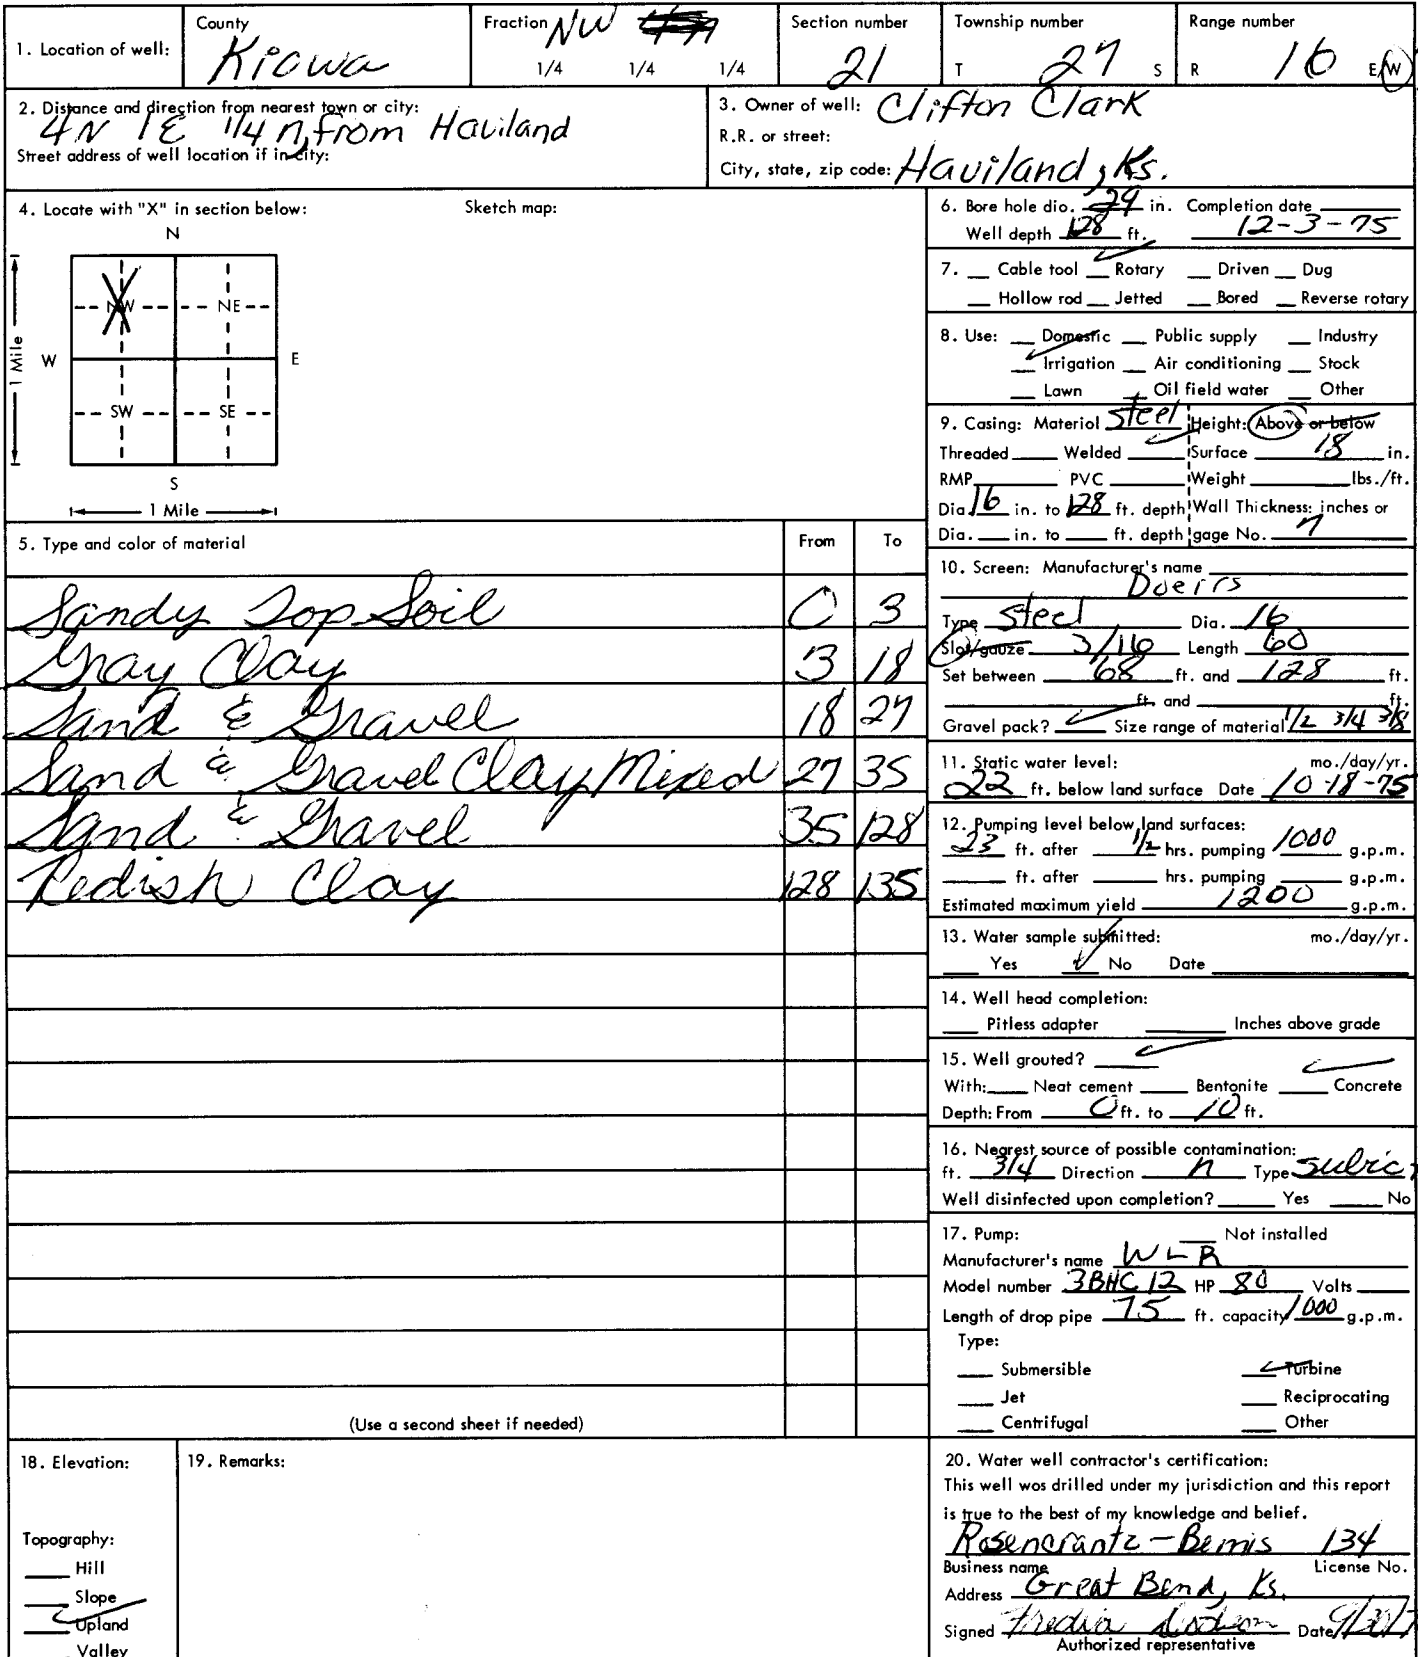 1. Location of well: County Kiowa Fraction NW 1/4 1/4 1/4 Section number 21 Township number T 27 S Range number R 16 E/W
2. Distance and direction from nearest town or city:
4N 1E 1/4 n, from Haviland
Street address of well location if in city:
3. Owner of well: Clifton Clark
R.R. or street:
City, state, zip code: Haviland, Ks.
4. Locate with "X" in section below: Sketch map:
N
NW NE
W E
1 Mile
SW SE
S
1 Mile
5. Type and color of material From To
Sandy Top Soil 0 3
Gray Clay 3 18
Sand & Gravel 18 27
Sand & Gravel Clay Mixed 27 35
Sand & Gravel 35 128
Redish Clay 128 135
(Use a second sheet if needed)
6. Bore hole dia. 29 in. Completion date
Well depth 128 ft. 12-3-75
7. Cable tool Rotary Driven Dug
Hollow rod Jetted Bored Reverse rotary
8. Use: Domestic Public supply Industry
Irrigation Air conditioning Stock
Lawn Oil field water Other
9. Casing: Material Steel Height: Above or below
Threaded Welded Surface 18 in.
RMP PVC Weight lbs./ft.
Dia. 16 in. to 128 ft. depth Wall Thickness: inches or
Dia. in. to ft. depth gage No. 7
10. Screen: Manufacturer's name
Doerrs
Type Steel Dia. 16
Slot/gauze 3/16 Length 60
Set between 68 ft. and 128 ft.
ft. and ft.
Gravel pack? Size range of material 1/2 3/4 3/8
11. Static water level: mo./day/yr.
22 ft. below land surface Date 10-18-75
12. Pumping level below land surfaces:
23 ft. after 1/2 hrs. pumping 1000 g.p.m.
ft. after hrs. pumping g.p.m.
Estimated maximum yield 1200 g.p.m.
13. Water sample submitted: mo./day/yr.
Yes No Date
14. Well head completion:
Pitless adapter Inches above grade
15. Well grouted?
With: Neat cement Bentonite Concrete
Depth: From 0 ft. to 10 ft.
16. Nearest source of possible contamination:
ft. 3/4 Direction n Type
Well disinfected upon completion? Yes No
17. Pump: Not installed
Manufacturer's name WLR
Model number 3BHC 12 HP 80 Volts
Length of drop pipe 75 ft. capacity 1000 g.p.m.
Type:
Submersible Turbine
Jet Reciprocating
Centrifugal Other
18. Elevation:
Topography:
Hill
Slope
Upland
Valley
19. Remarks:
20. Water well contractor's certification:
This well was drilled under my jurisdiction and this report
is true to the best of my knowledge and belief.
Rosencrantz-Bemis 134
Business name License No.
Address Great Bend, Ks.
Signed Date
Authorized representative